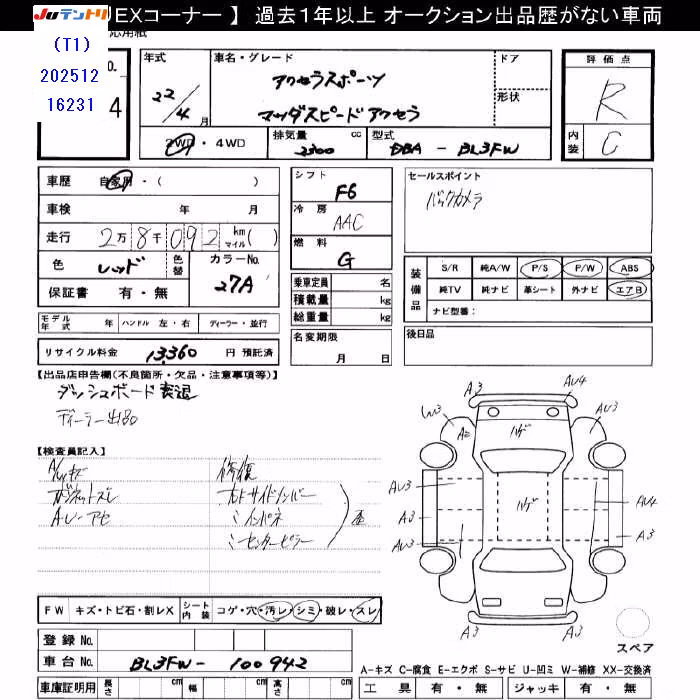 Juテントリ
EXコーナー 】 過去1年以上 オークション出品歴がない車両
応用紙
(T1)
202512
16231
o.
4
年式
22/4月
車名・グレード
アクセラスポーツ
マツダスピード アクセラ
ドア
形状
評価点
R
内装
C
2WD・4WD
排気量
2300 cc
型式
DBA - BL3FW
車歴 自家用・( )
車検 年 月
走行 2万8千092 km マイル( )
色 レッド 色替 カラーNo. 27A
保証書 有・無
シフト
F6
冷房
AAC
燃料
G
セールスポイント
バックカメラ
乗車定員 名
積載量 kg
総重量 kg
装備品
S/R 純A/W P/S P/W ABS
純TV 純ナビ 革シート 外ナビ エアB
ナビ型番:
モデル年式 年 ハンドル 左・右 ディーラー・並行
名変期限
月 日
後日品
リサイクル料金 13,360 円 預託済
【出品店申告欄(不良箇所・欠品・注意事項等)】
ダッシュボード表退
ディーラー出品
【検査員記入】
ボンネットズレ
AU-アセ
修復
コアサイドメンバー
ミインパネ
ミセンターピラー
A3
AU4
W3
AU3
A2
ハゲ
AU3
ハゲ
AU4
A3
A3
AU3
A3
A3
FW キズ・トビ石・割レX シート内装 コゲ・穴・汚レ・シミ・破レ・スレ
スペア
登録 No.
車台 No. BL3FW- 100942
A-キズ C-腐食 E-エクボ S-サビ U-凹ミ W-補修 XX-交換済
車庫証明用 長さ cm 幅 cm 高さ cm
工具 有・無 ジャッキ 有・無